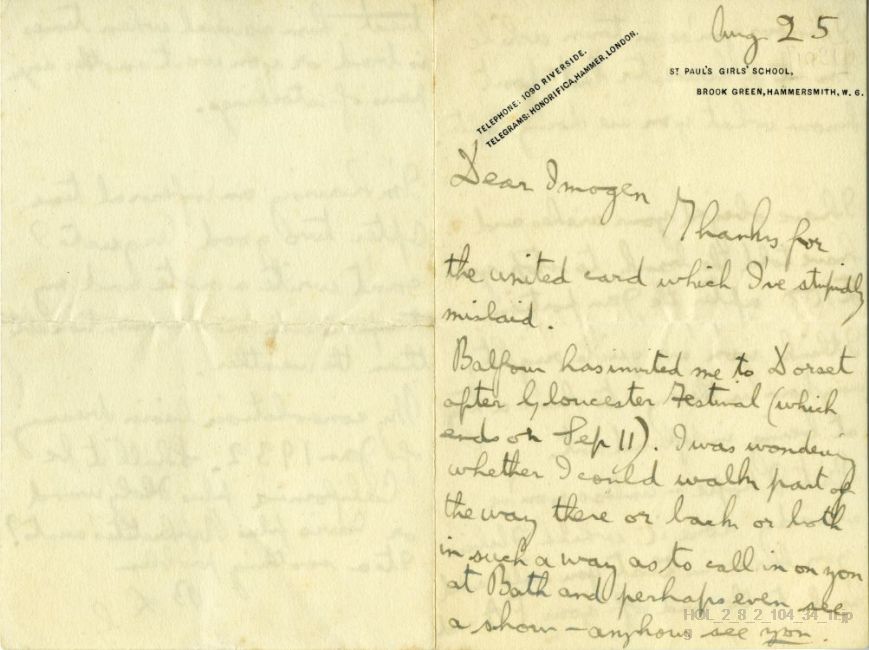 Aug 25
TELEPHONE: 1090 RIVERSIDE.
TELEGRAMS: HONORIFICA, HAMMER, LONDON.
ST PAUL'S GIRLS' SCHOOL,
BROOK GREEN, HAMMERSMITH, W. 6.
Dear Imogen
Thanks for
the united card which I've stupidly
mislaid.
Balfour has invited me to Dorset
after Gloucester Festival (which
ends on Sep 11). I was wondering
whether I could walk part of
the way there or back or both
in such a way as to call in on you
at Bath and perhaps even see
a show – anyhow see you.
HOL_2_8_2_104_34_1r.jp
g